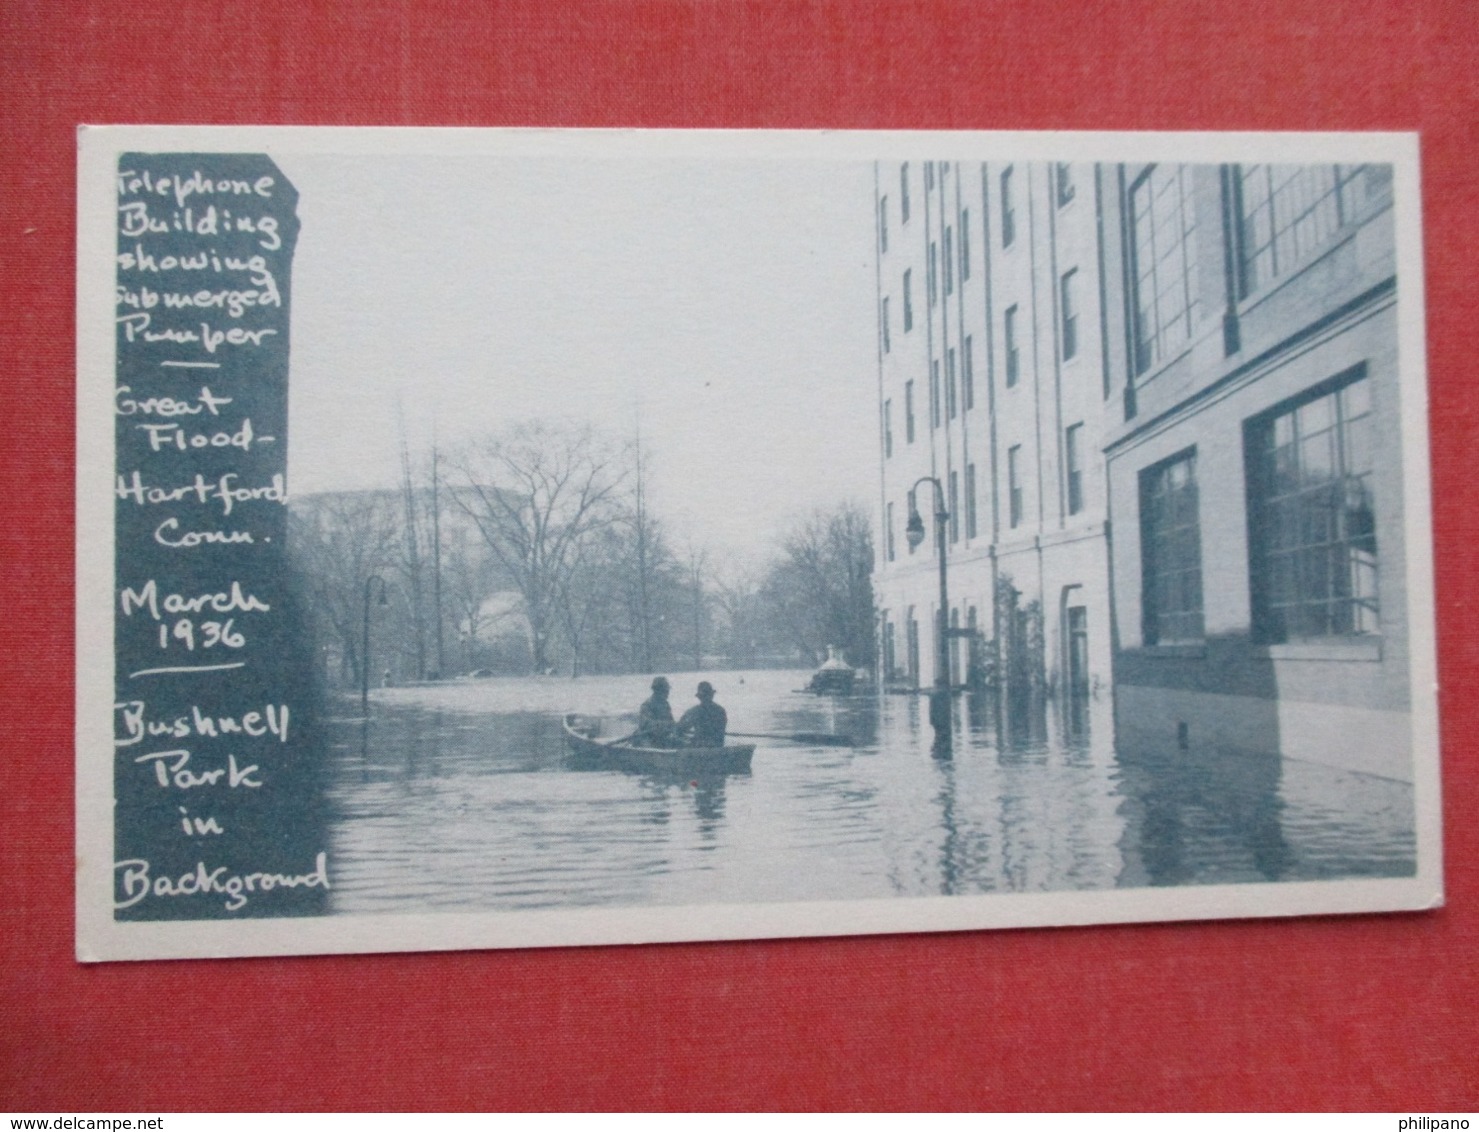 Telephone
Building
showing
Submerged
Pumper
Great
Flood-
Hartford,
Conn.
March
1936
Bushnell
Park
in
Background
www.delcampe.net
philipano